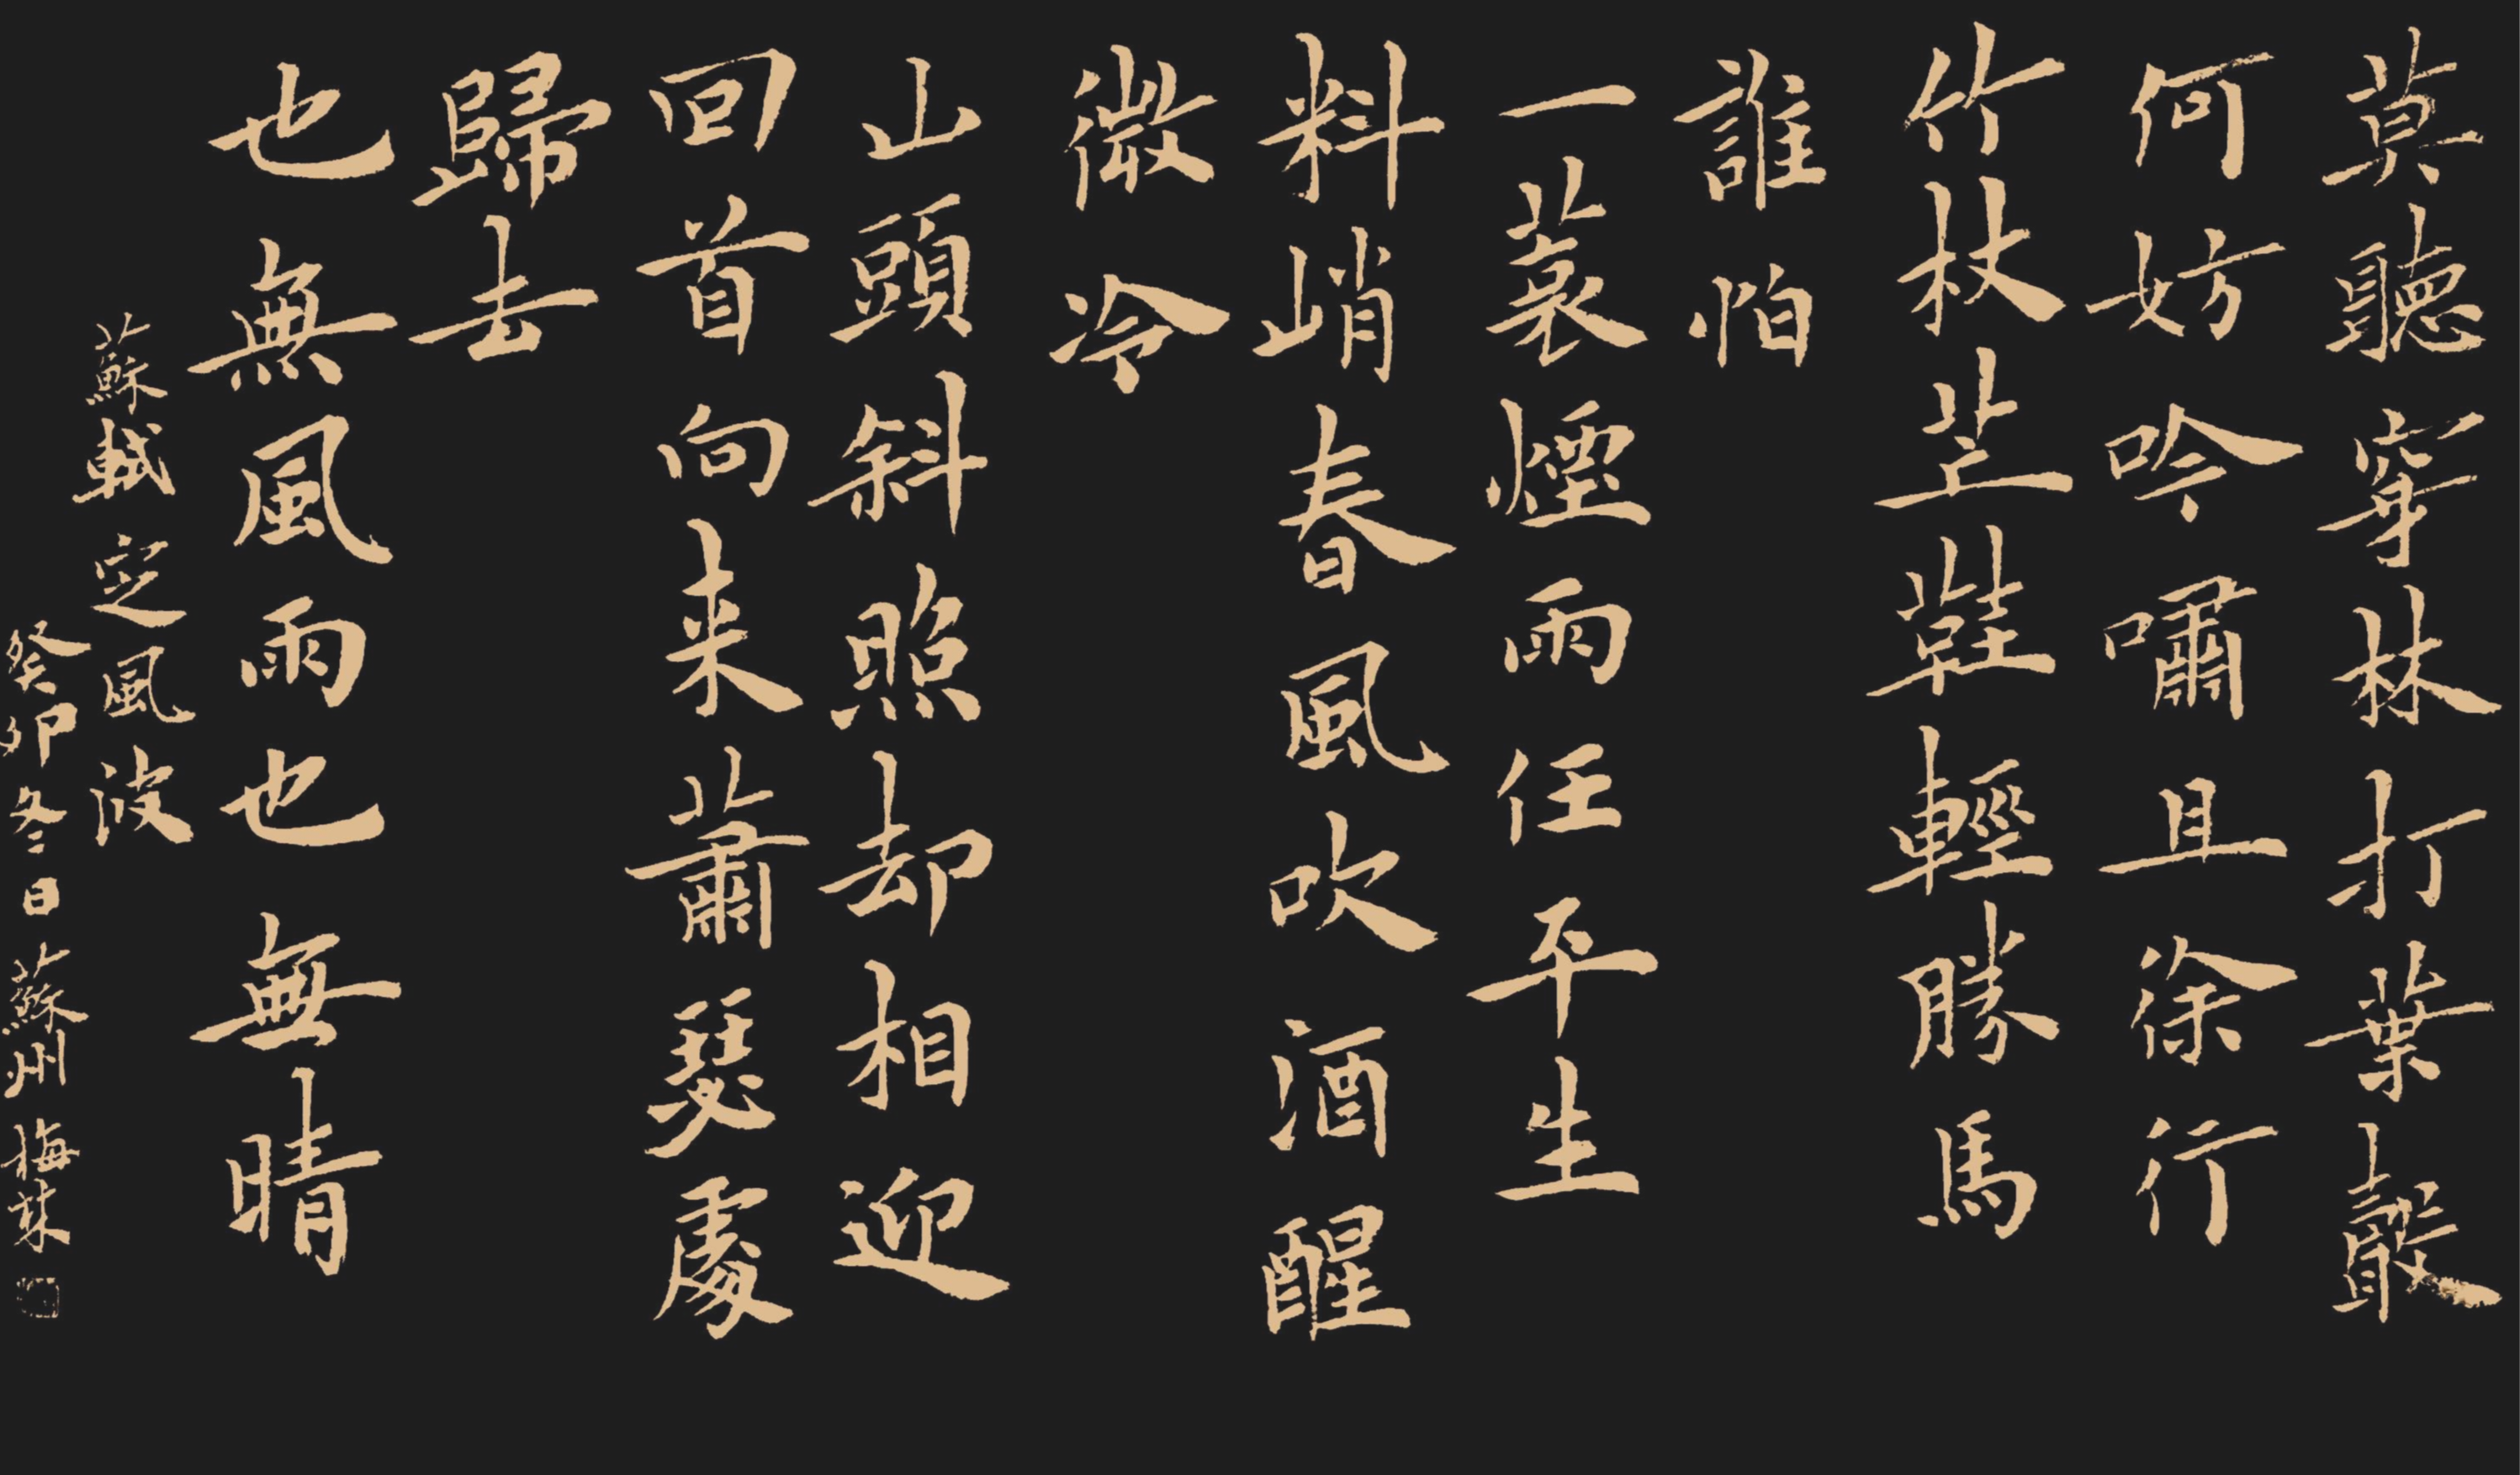 莫聽穿林打葉聲
何妨吟嘯且徐行
竹杖芒鞋輕勝馬
誰怕
一蓑煙雨任平生
料峭春風吹酒醒
微冷
山頭斜照却相迎
回首向来蕭瑟處
歸去
也無風雨也無晴
蘇軾定風波
癸卯冬日蘇州梅林